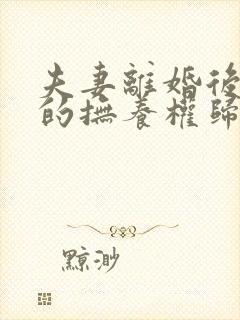 夫妻離婚後
的撫養權歸
黥渺